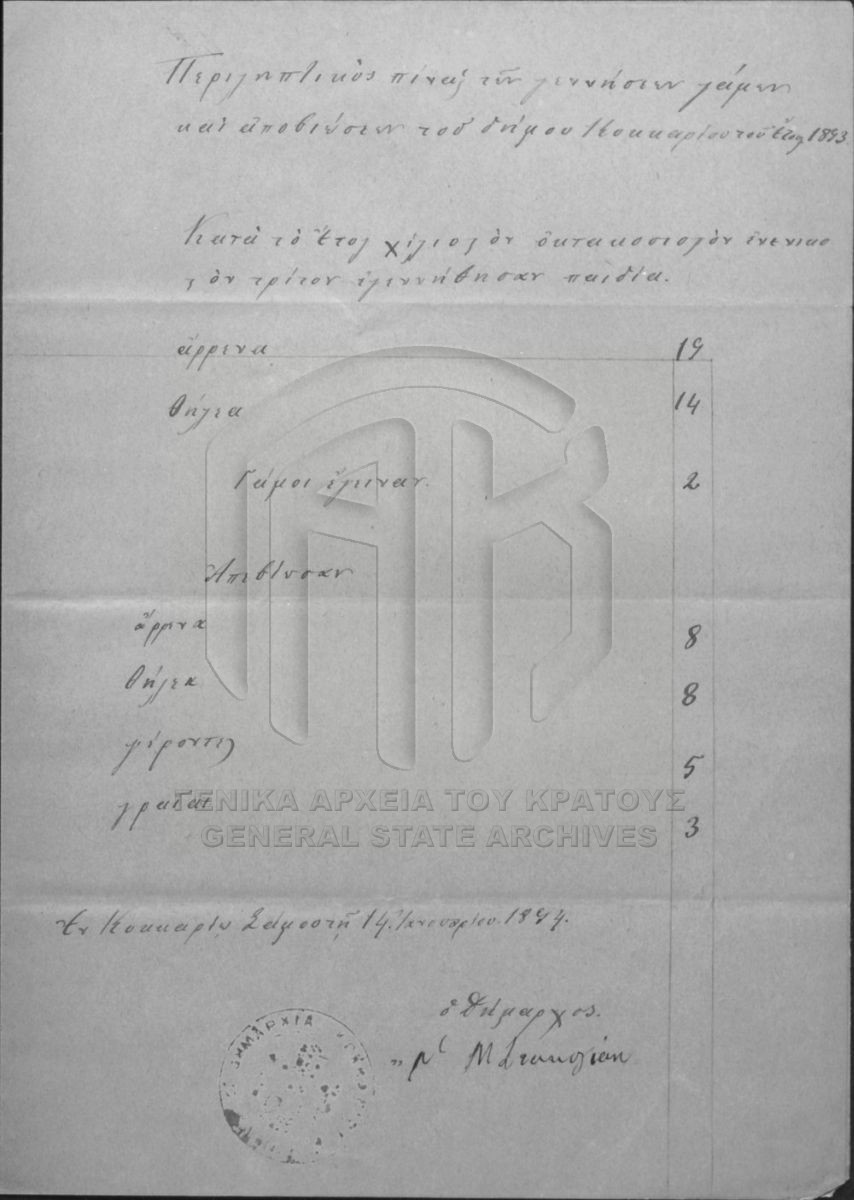 Περιληπτικὸς πίναξ τῶν γεννήσεων γάμων
καὶ ἀποβιώσεων τοῦ δήμου Κοκκαρίου τοῦ ἔτους 1893
Κατὰ τὸ ἔτος χιλιοστὸν ὀκτακοσιοστὸν ἐνενικο
στὸν τρίτον ἐγεννήθησαν παιδία.
ἄρρενα 19
θήλεα 14
Γάμοι ἔγειναν. 2
Ἀπεβίωσαν
ἄρρενα 8
θήλεα 8
γέροντες 5
γραῖαι 3
ΓΕΝΙΚΑ ΑΡΧΕΙΑ ΤΟΥ ΚΡΑΤΟΥΣ
GENERAL STATE ARCHIVES
Ἐν Κοκκαρίῳ Σάμου τῇ 14 Ἰανουαρίου 1894.
ὁ δήμαρχος.
ΔΗΜΑΡΧΙΑ